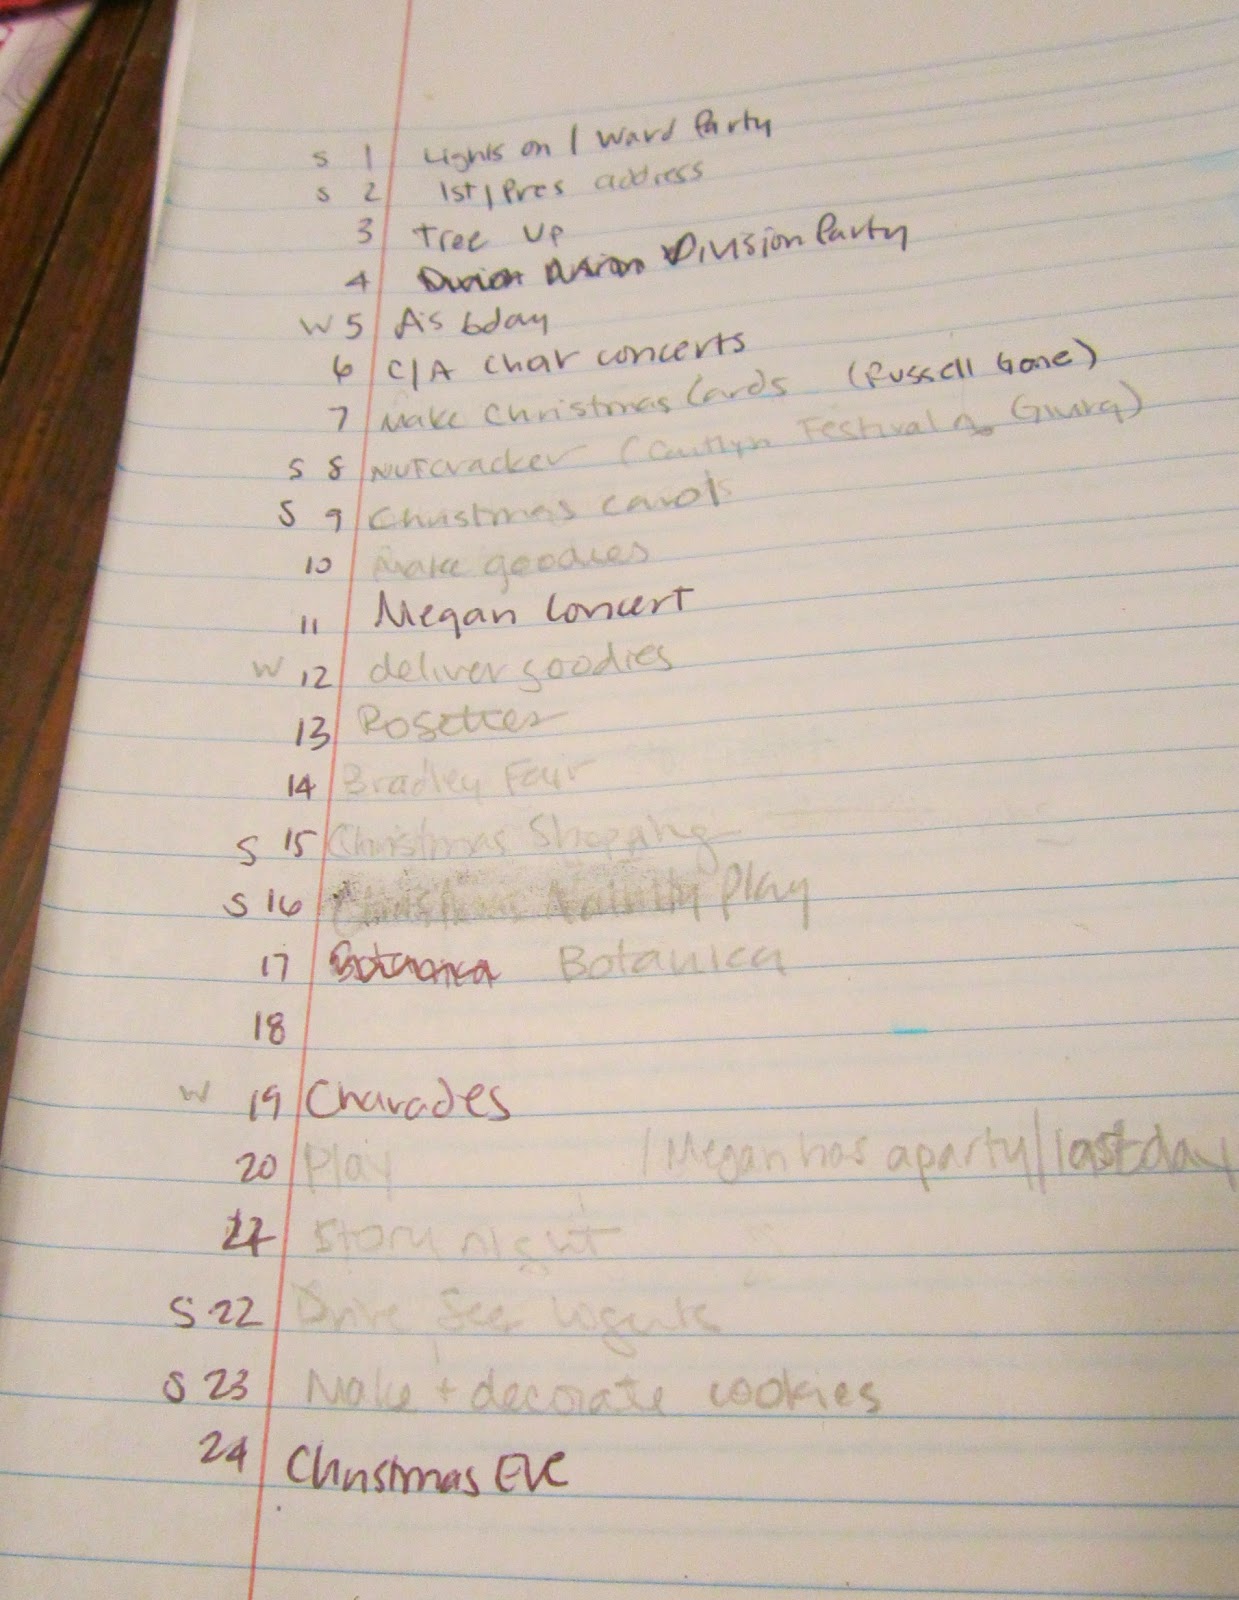 S 1 Lights on / Ward Party
S 2 1st / Pres address
3 Tree Up
4 Division Party
W 5 A's bday
6 C/A Char concerts
7 Make Christmas Cards (Russell Gone)
S 8 Nutcracker (Caitlyn Festival
S 9 Christmas carols
10 Make goodies
11 Megan Concert
W 12 deliver goodies
13 Rosettes
14 Bradley Fair
S 15 Christmas Shopping
S 16 Christmas Nativity Play
17 Botanica Botanica
18
W 19 Charades
20 Play / Megan has a party / last day
21 Story night
S 22 Drive See
S 23 Make + decorate cookies
24 Christmas Eve